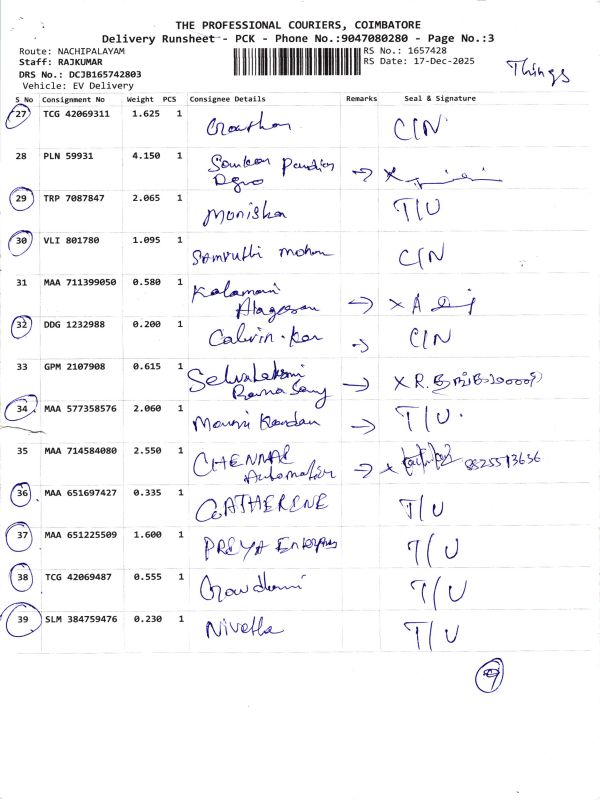 THE PROFESSIONAL COURIERS, COIMBATORE
Delivery Runsheet - PCK - Phone No.:9047080280 - Page No.:3
Route: NACHIPALAYAM RS No.: 1657428
Staff: RAJKUMAR RS Date: 17-Dec-2025
DRS No.: DCJB165742803
Vehicle: EV Delivery
Things
S No Consignment No Weight PCS Consignee Details Remarks Seal & Signature
27 TCG 42069311 1.625 1 C/N
28 PLN 59931 4.150 1
29 TRP 7087847 2.065 1 Monisha T/U
30 VLI 801780 1.095 1 Samruthi mohan C/N
31 MAA 711399050 0.580 1 Kalamani
Alagesan
32 DDG 1232988 0.200 1 Calvin.ker C/N
33 GPM 2107908 0.615 1 Selvalakshmi
34 MAA 577358576 2.060 1 Mouni Kandan T/U.
35 MAA 714584080 2.550 1 CHENNAI
Automation
36 MAA 651697427 0.335 1 CATHERENE T/U
37 MAA 651225509 1.600 1 PREYA Enterprises T/U
38 TCG 42069487 0.555 1 Gowdhami T/U
39 SLM 384759476 0.230 1 Nivetha T/U
9